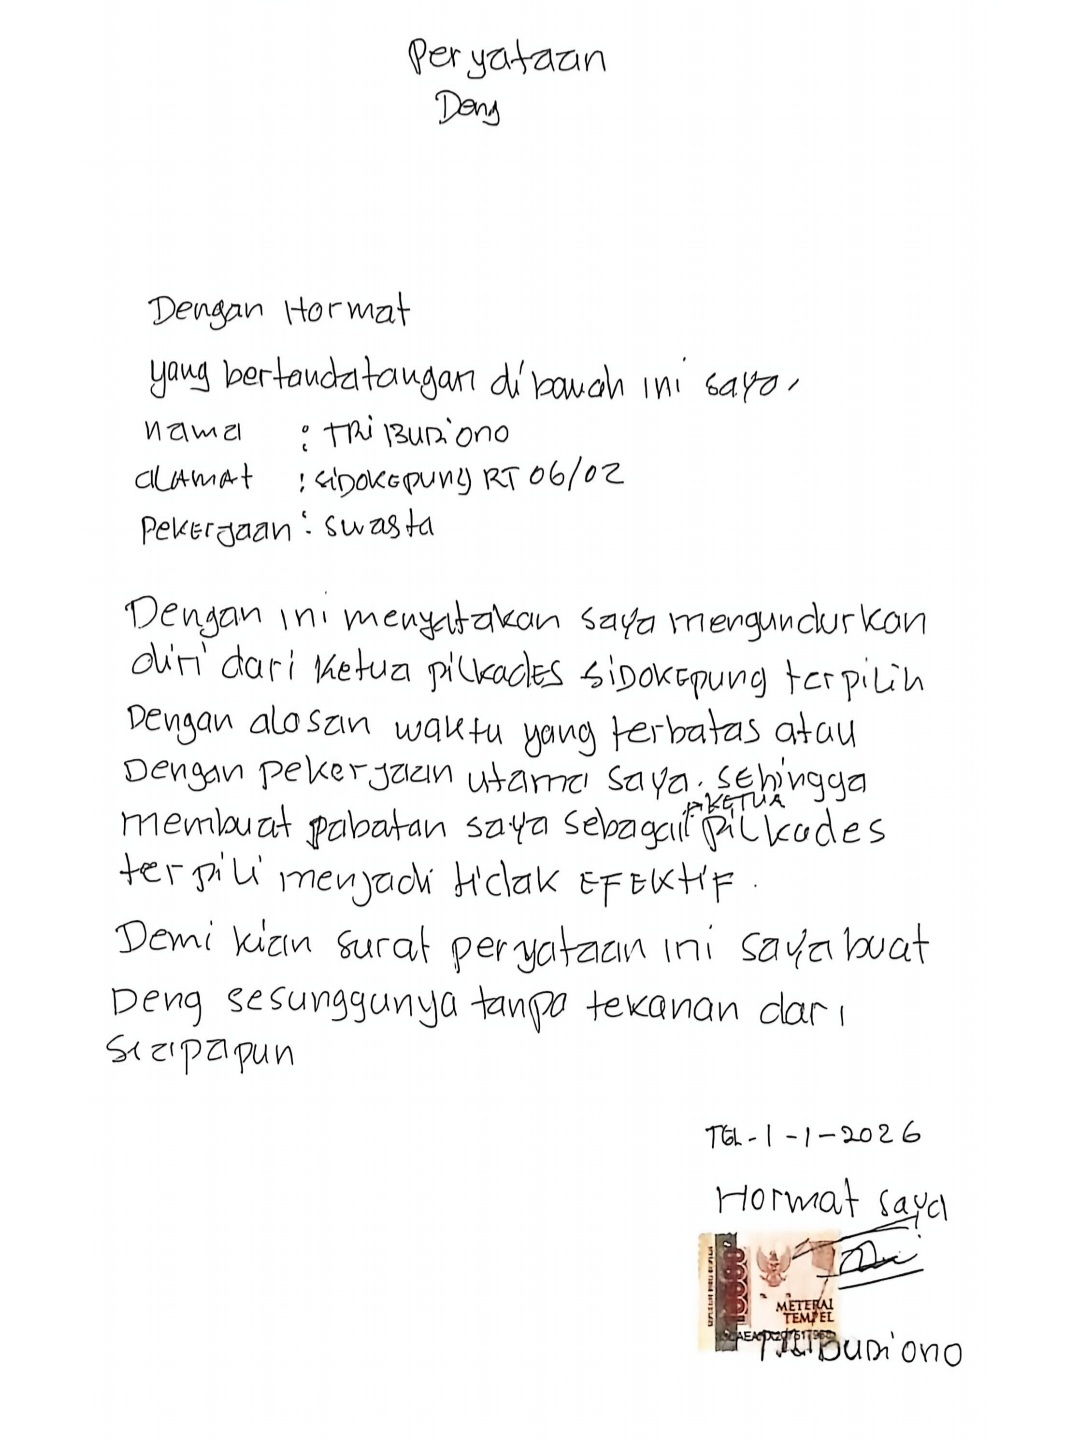 Peryataan
Deng
Dengan Hormat
yang bertandatangan di bawah ini saya,
nama : TRi BUDiONO
ALAMAT : SIDOKEPUNG RT 06/02
Pekerjaan : swasta
Dengan ini menyatakan saya mengundurkan
diri dari Ketua pilkades SIDOKEPUNG terpilih
Dengan alasan waktu yang terbatas atau
Dengan pekerjaan utama saya. sehingga
KETUA
membuat jabatan saya sebagai pilkades
terpili menjadi tidak EFEKTIF.
Demi kian surat peryataan ini saya buat
Deng sesunggunya tanpa tekanan dari
siapapun
TGL-1-1-2026
Hormat saya
METERAI
TEMPEL
TRi BUDiONO